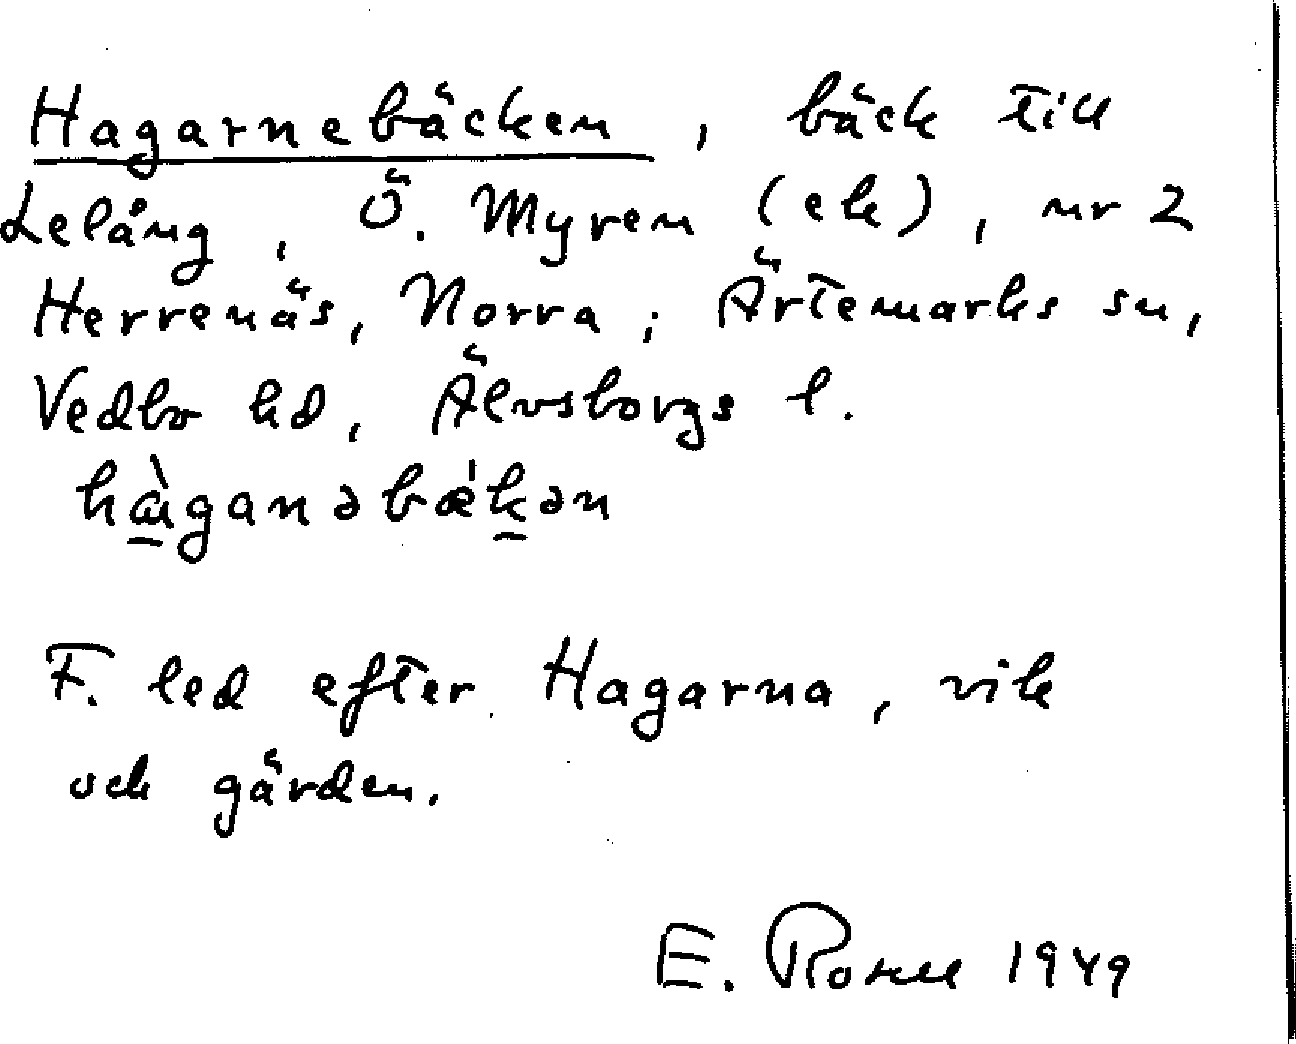 Hagarnebäcken, bäck till
Lelång, Ö. Myren (ek), nr 2
Herrenäs, Norra; Ärtemarks sn,
Vedbo hd, Älvsborgs l.
hàganəbǽkən
F. led efter Hagarna, vik
och gärden.
E. 1949